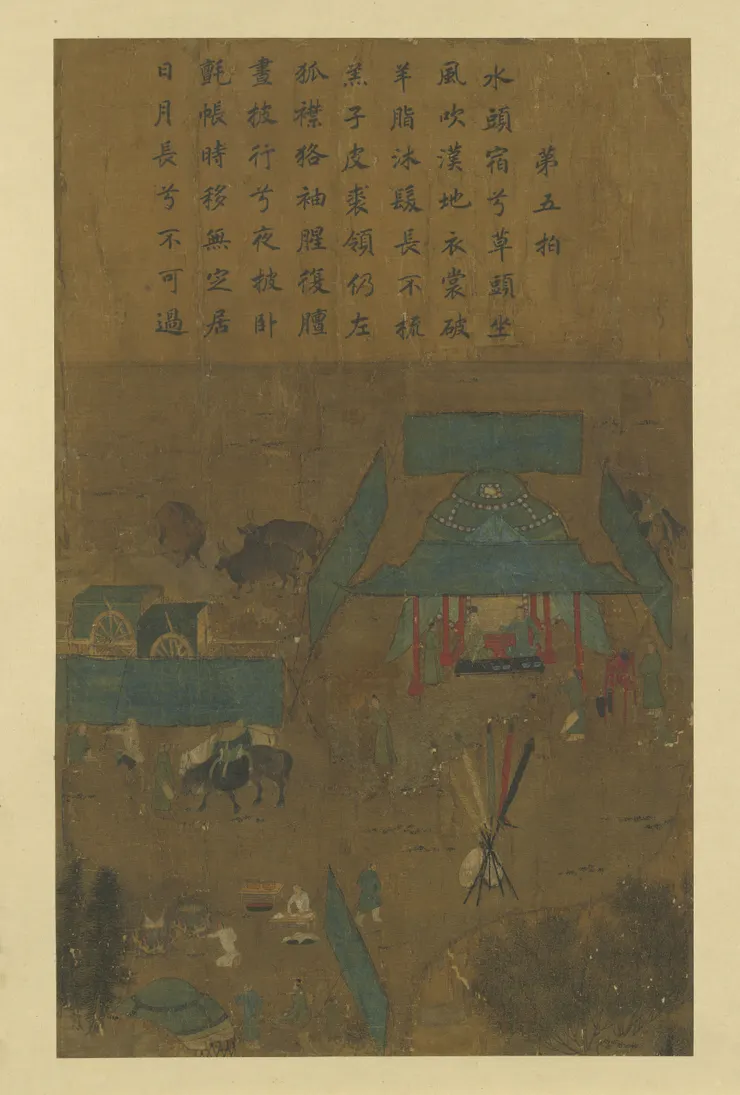 第五拍
水頭宿兮草頭坐
風吹漢地衣裳破
羊脂沐髮長不梳
羔子皮裘領仍左
狐襟狢袖腥復膻
晝披行兮夜披卧
氈帳時移無定居
日月長兮不可過